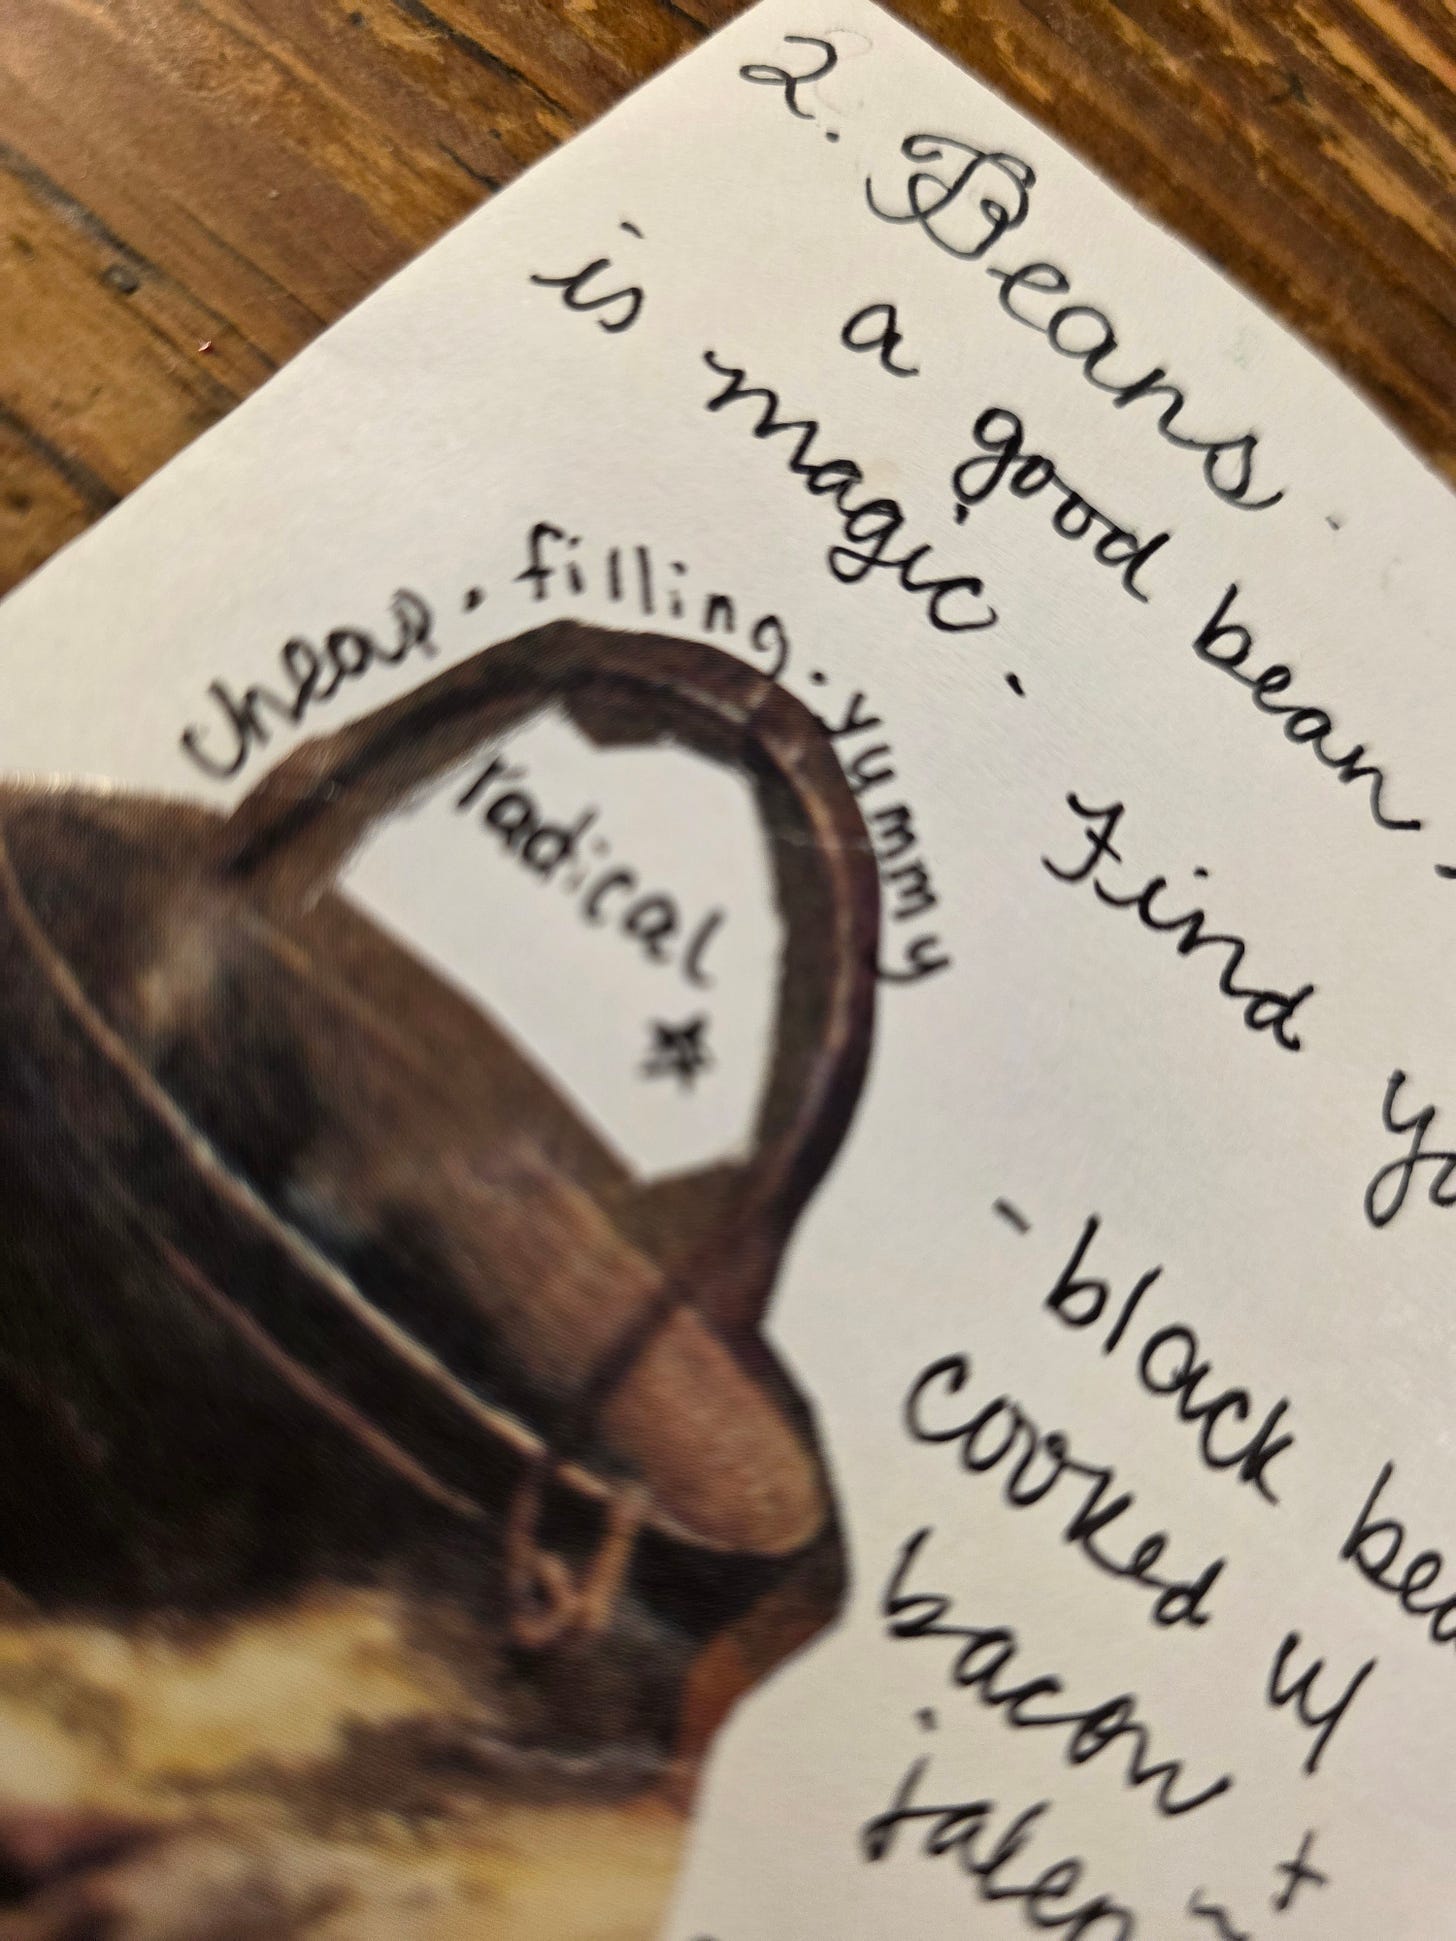 2. Beans.
a good bean
is magic. Find yo
cheap · filling · yummy
radical
- black bea
cooked w/
bacon +